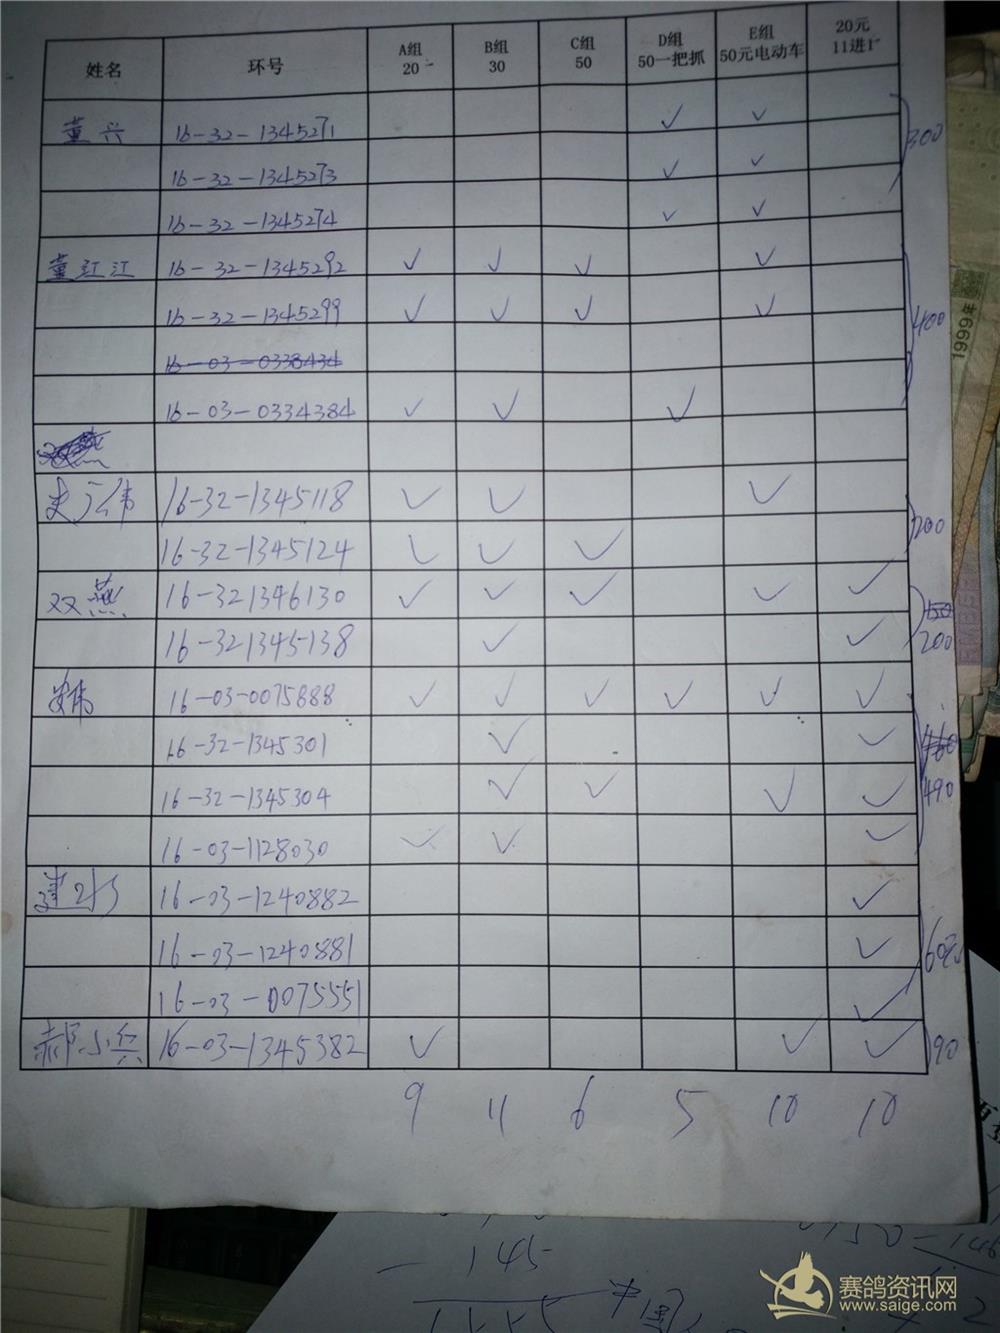 姓名 环号 A组 20 B组 30 C组 50 D组 50一把抓 E组 50元电动车 20元 11进1
董兴 16-32-1345271 ✓ ✓
16-32-1345273 ✓ ✓ 300
16-32-1345274 ✓ ✓
董红江 16-32-1345292 ✓ ✓ ✓ ✓
16-32-1345299 ✓ ✓ ✓ ✓ 400
16-03-0338434
16-03-0334384 ✓ ✓ ✓
16-32-1345118 ✓ ✓ ✓
16-32-1345124 ✓ ✓ ✓ 200
双燕 16-321346130 ✓ ✓ ✓ ✓ ✓
16-321345138 ✓ ✓ 200
16-03-0075888 ✓ ✓ ✓ ✓ ✓ ✓
16-32-1345301 ✓ ✓ 460
16-32-1345304 ✓ ✓ ✓ ✓ 490
16-03-1128030 ✓ ✓ ✓
16-03-1240882 ✓
16-03-1240881 ✓ 60
16-03-0075551 ✓
郝小兵 16-03-1345382 ✓ ✓ ✓ 90
9 11 6 5 10 10
1999年
145
赛鸽资讯网
www.saige.com